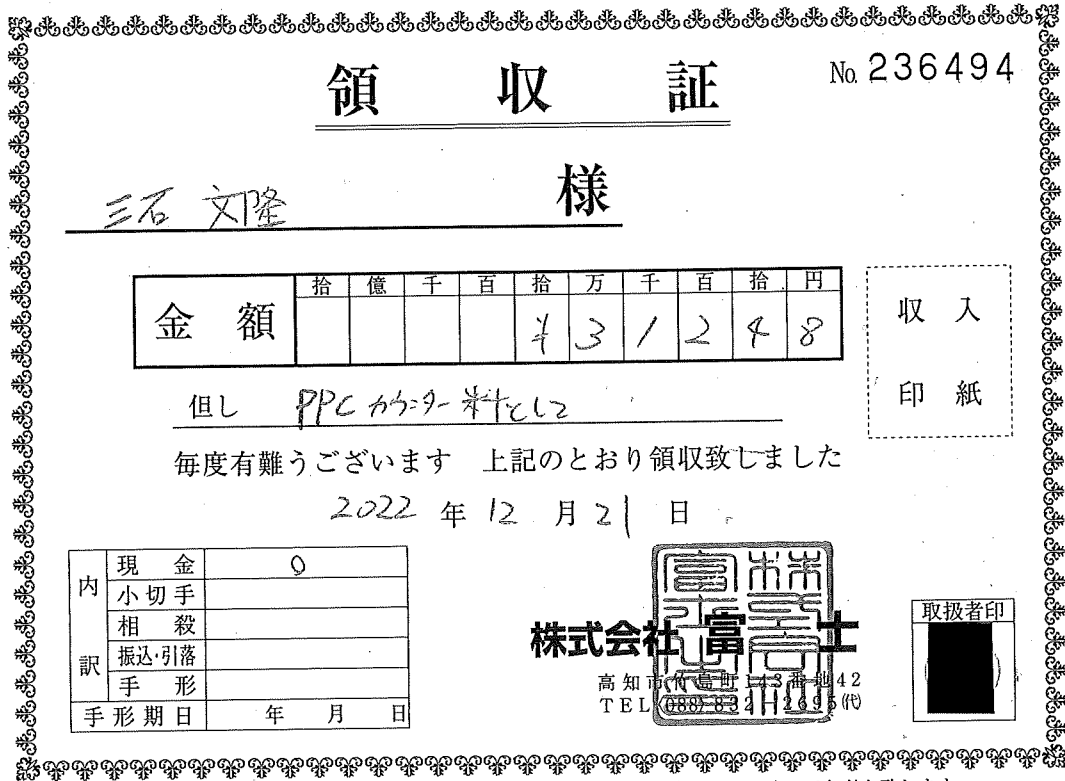 領収証
No. 236494
三石 文隆 様
金額
拾 億 千 百 拾 万 千 百 拾 円
¥ 3 1 2 4 8
収入
印紙
但し PPCカウンター料として
毎度有難うございます 上記のとおり領収致しました
2022年12月21日
内訳
現金 0
小切手
相殺
振込・引落
手形
手形期日 年 月 日
株式会社 富士
高知市竹島町143番地42
TEL (088) 832-2695(代)
取扱者印